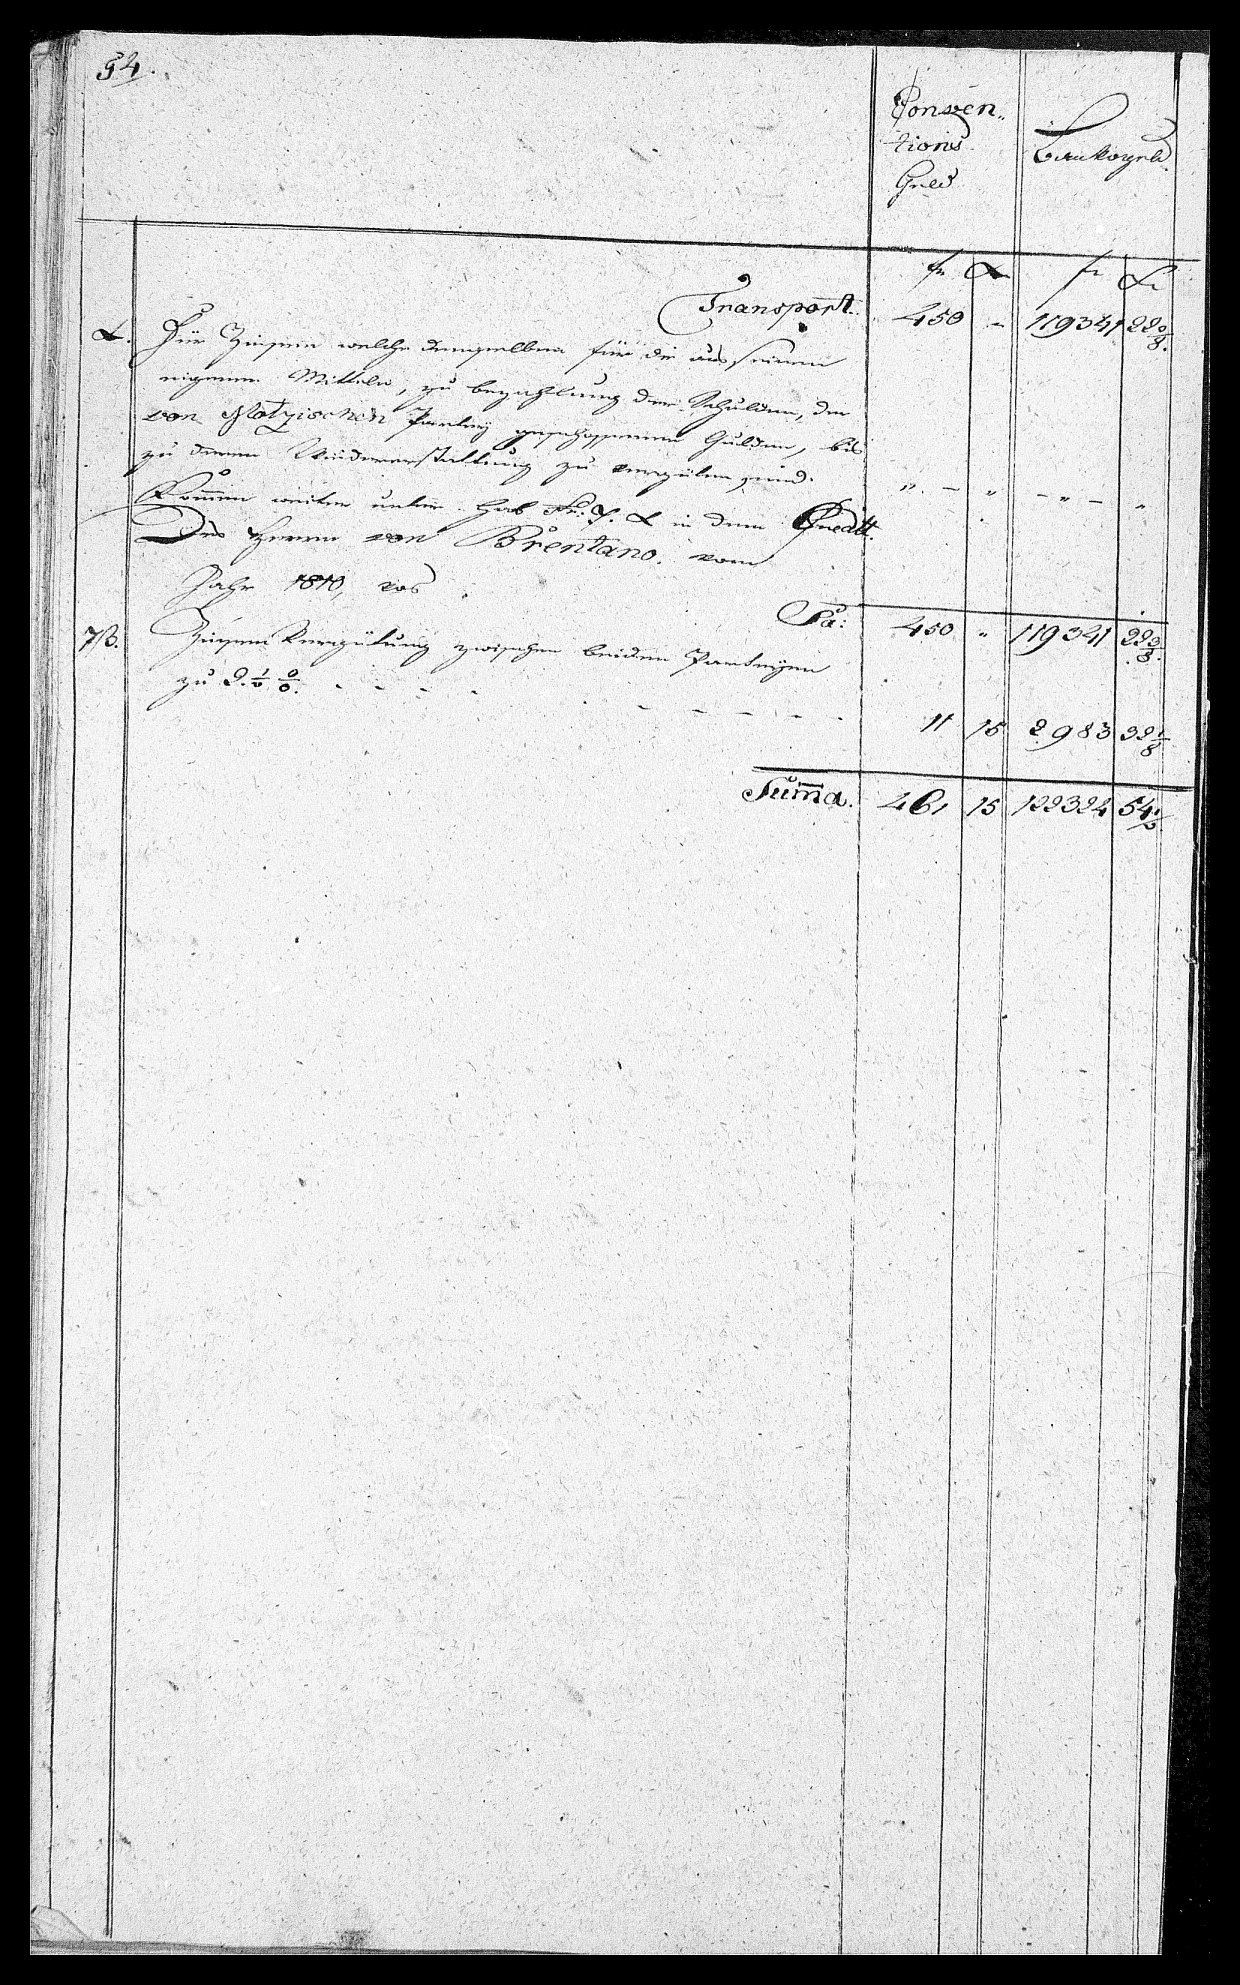 54.
Konven„
tions
Geld
Bankogeld
fr. x fr. x
Transport. 450 „ 119341 22 3/8.
L. Für Zinsen welche demselben für die aus seinen
eigenen Mitteln, zu bezahlung der Schulden, der
von Glotzischen Partey geschossenen Gulden, bis
zu deren Wiedererstattung zu vergüten sind.
Kommen weiter unter. Hab Nr. 7. L in dem Credit
Des Herrn von Brentano. vom
Jahr 1810, vor „ – „ – „ – „
Sa: 450 „ 119341 22 3/8.
7B. Zinsen Vergütung zwischen beiden Parteyen
zu 2. 1/2 0/0. - - - - 11 15 2983 32 1/8
Summa. 461 15 122324 54 1/2